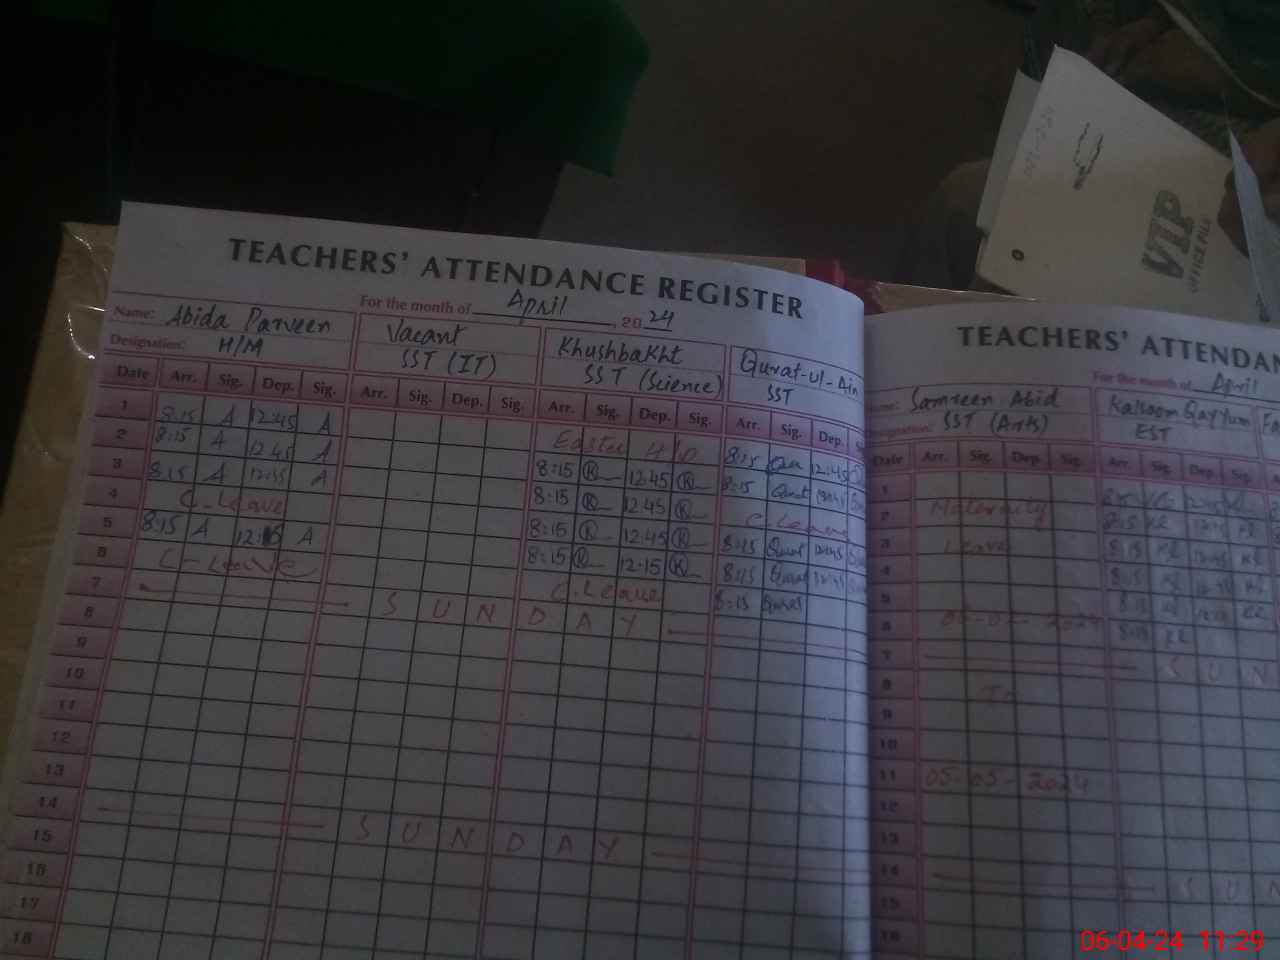 VIP
OFFICE FILE
TEACHERS' ATTENDANCE REGISTER
For the month of April, 2024
Name: Abida Parveen
Designation: H/M
Vacant
SST (IT)
Khushbakht
SST (Science)
Qurat-ul-Ain
SST
Date Arr. Sig. Dep. Sig. Arr. Sig. Dep. Sig. Arr. Sig. Dep. Sig. Arr. Sig. Dep.
1 8:15 A 12:45 A Easter 8:15 12:45
2 8:15 A 12:45 A 8:15 K 12:45 K 8:15 Qurat
3 8:15 A 12:45 A 8:15 K 12:45 K C-Leave
4 C-Leave 8:15 K 12:45 K 8:15 Qurat 12:45
5 8:15 A A 8:15 K 12:15 K 8:15 Qurat
6 C-Leave C.Leave 8:15 Qurat
7 SUNDAY
8
9
10
11
12
13
14 SUNDAY
15
16
17
18
TEACHERS' ATTENDAN
For the month of April
Name: Samreen Abid
Designation: SST (Arts)
Kalsoom Qayyum
EST
Date Arr. Sig. Dep. Sig. Arr. Sig. Dep. Sig.
1 8:15 12:45
2 Maternity 8:15 KQ 12:45 KQ
3 Leave 8:15 KQ 12:45 KQ
4 8:15 KQ 12:45 KQ
5 8:15 KQ KQ
6 2024 8:15 KQ
7 SUN
8 To
9
10
11 05-05-2024
12
13
14 SUN
15
16
06-04-24 11:29